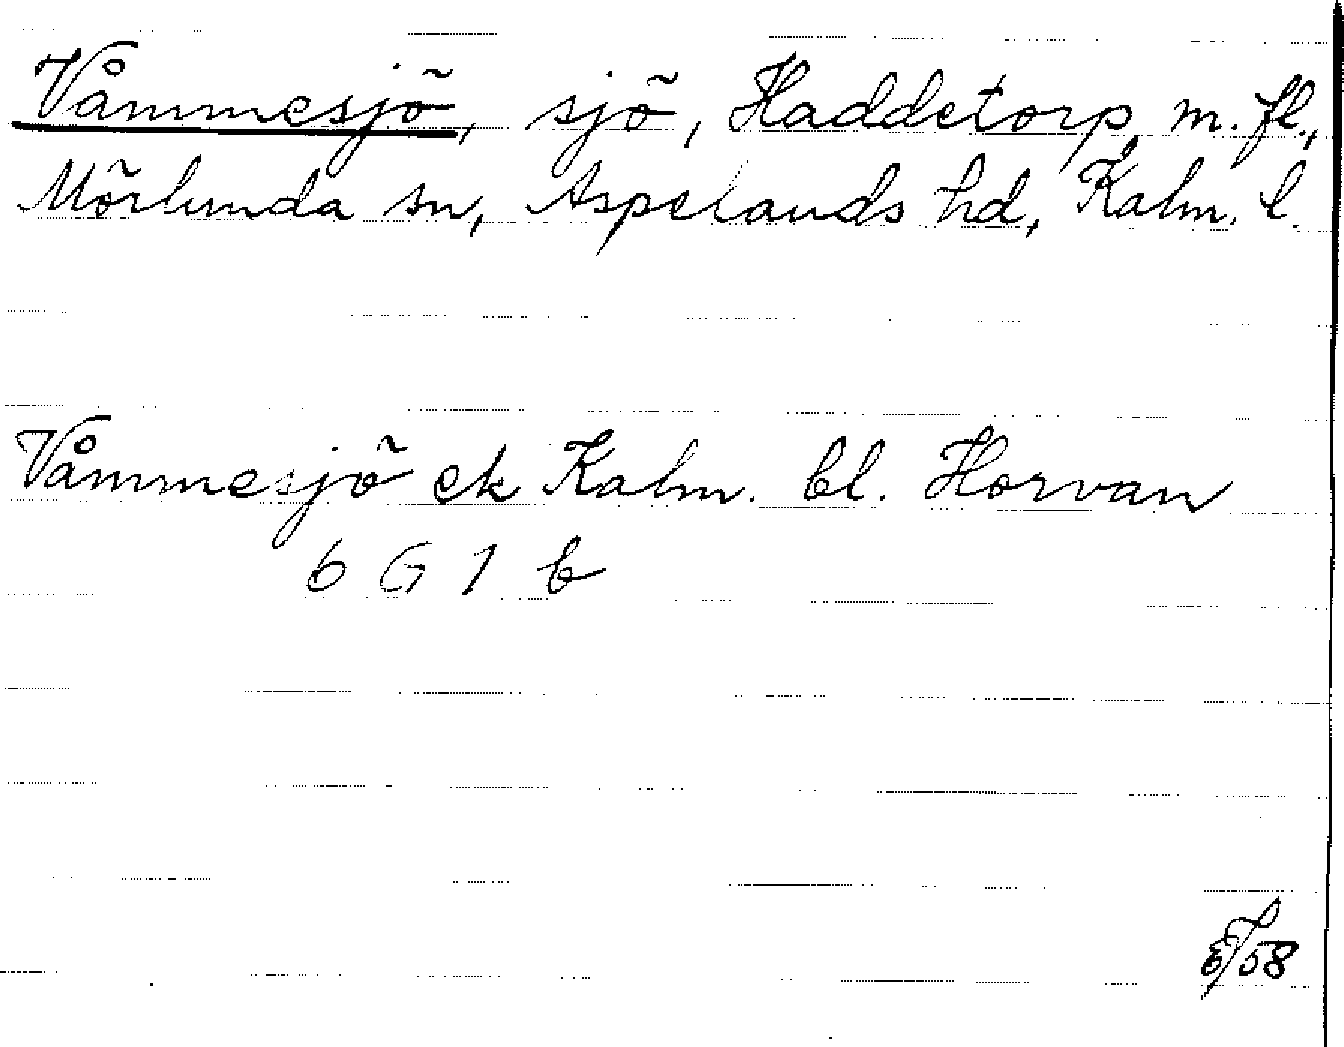 Våmmesjö, sjö, Haddetorp m. fl.,
Mörlunda sn, Aspelands hd, Kalm. l.
Våmmesjö ek Kalm. bl. Horvan
6 G 1 b